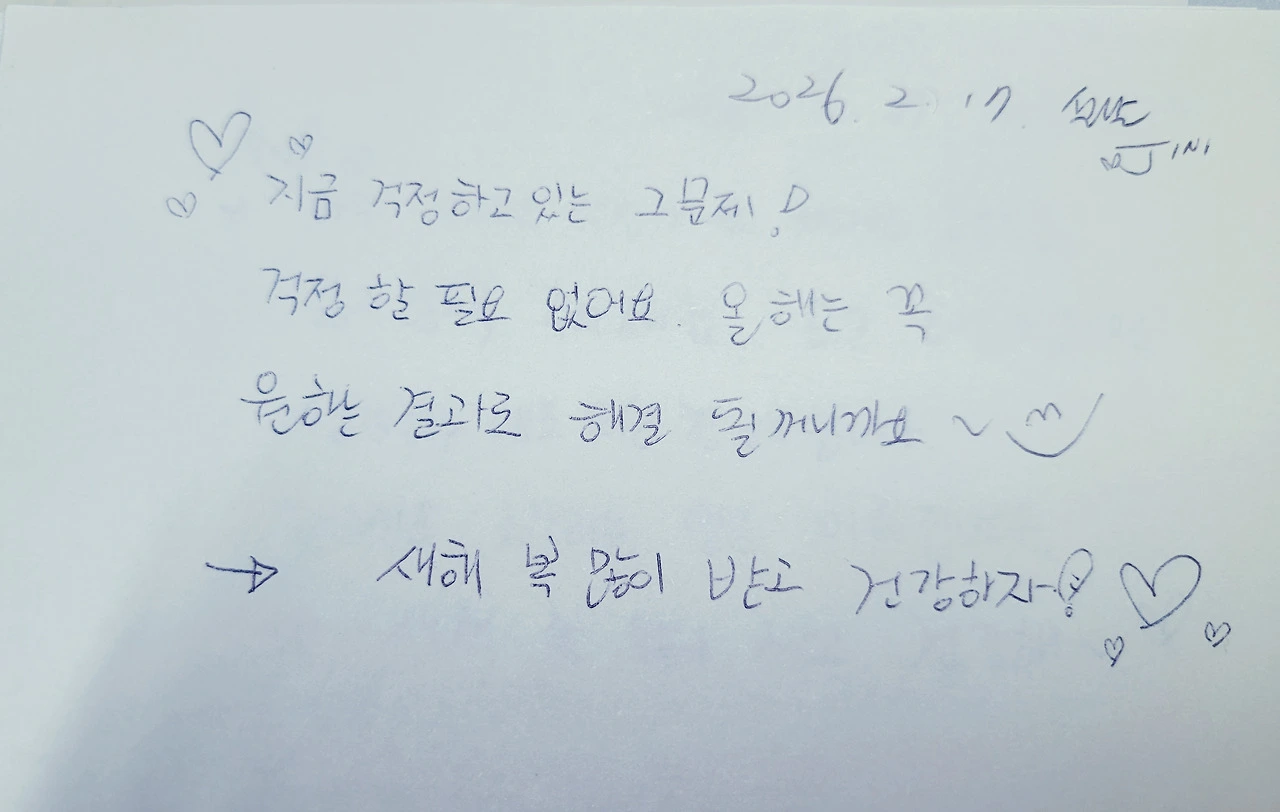 2026. 2. 17.
지금 걱정하고 있는 그 문제!
걱정 할 필요 없어요. 올해는 꼭
원하는 결과로 해결 될꺼니까요~
→ 새해 복 많이 받고 건강하자!